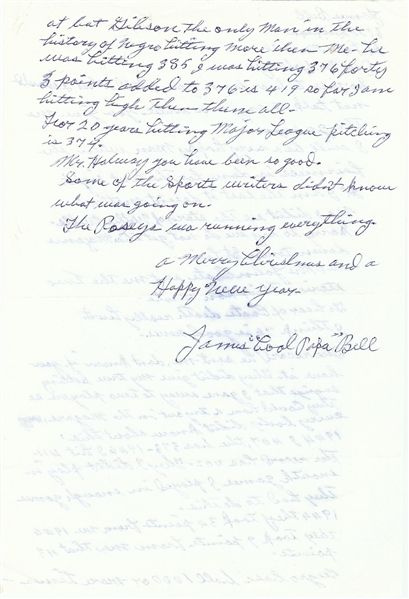 at bat Gibson the only man in the
history of Negro hitting more than Me - he
was hitting 385 I was hitting 376 forty
3 points added to 376 is 419 so far I am
hitting high then them all.
For 20 years hitting Major League pitching
is 374.
Mr. Holway you have been so good.
Some of the Sports writers didn't know
what was going on.
The Poseys was running everything.
a Merry Christmas and a
Happy New Year.
James "Cool Papa" Bell